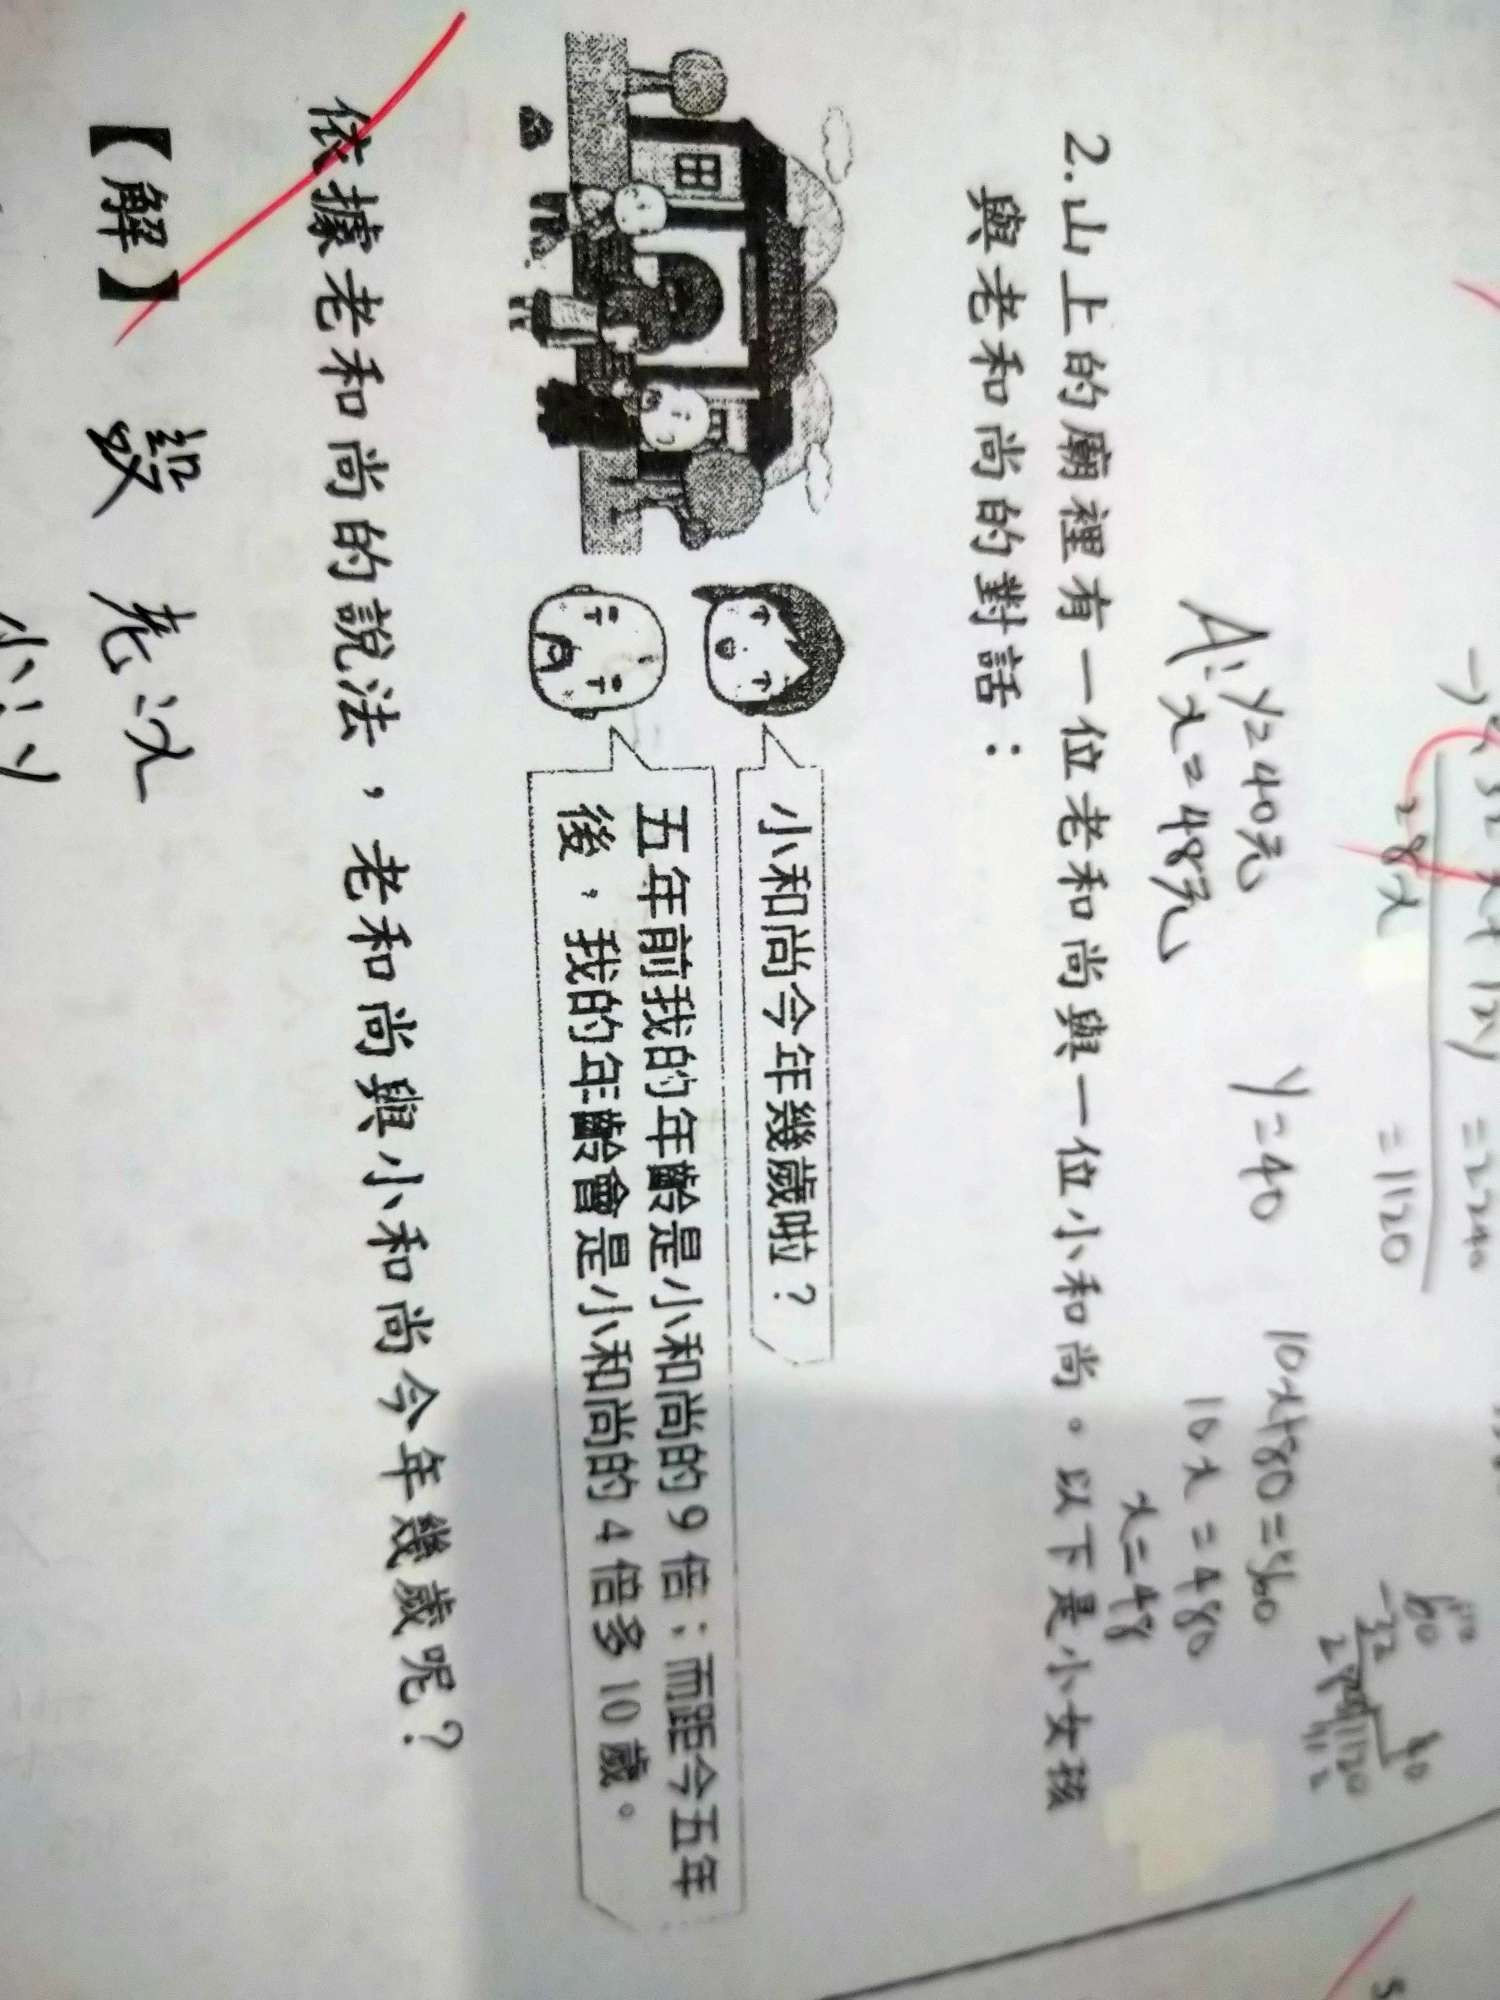 = 2240
28x = 1120
A: y=40元
x=48元
y=40
10x+480=960
10x=480
x=48
2.山上的廟裡有一位老和尚與一位小和尚。以下是小女孩
與老和尚的對話：
小和尚今年幾歲啦？
五年前我的年齡是小和尚的9倍；而距今五年
後，我的年齡會是小和尚的4倍多10歲。
依據老和尚的說法，老和尚與小和尚今年幾歲呢？
【解】 設 老:x
小:y